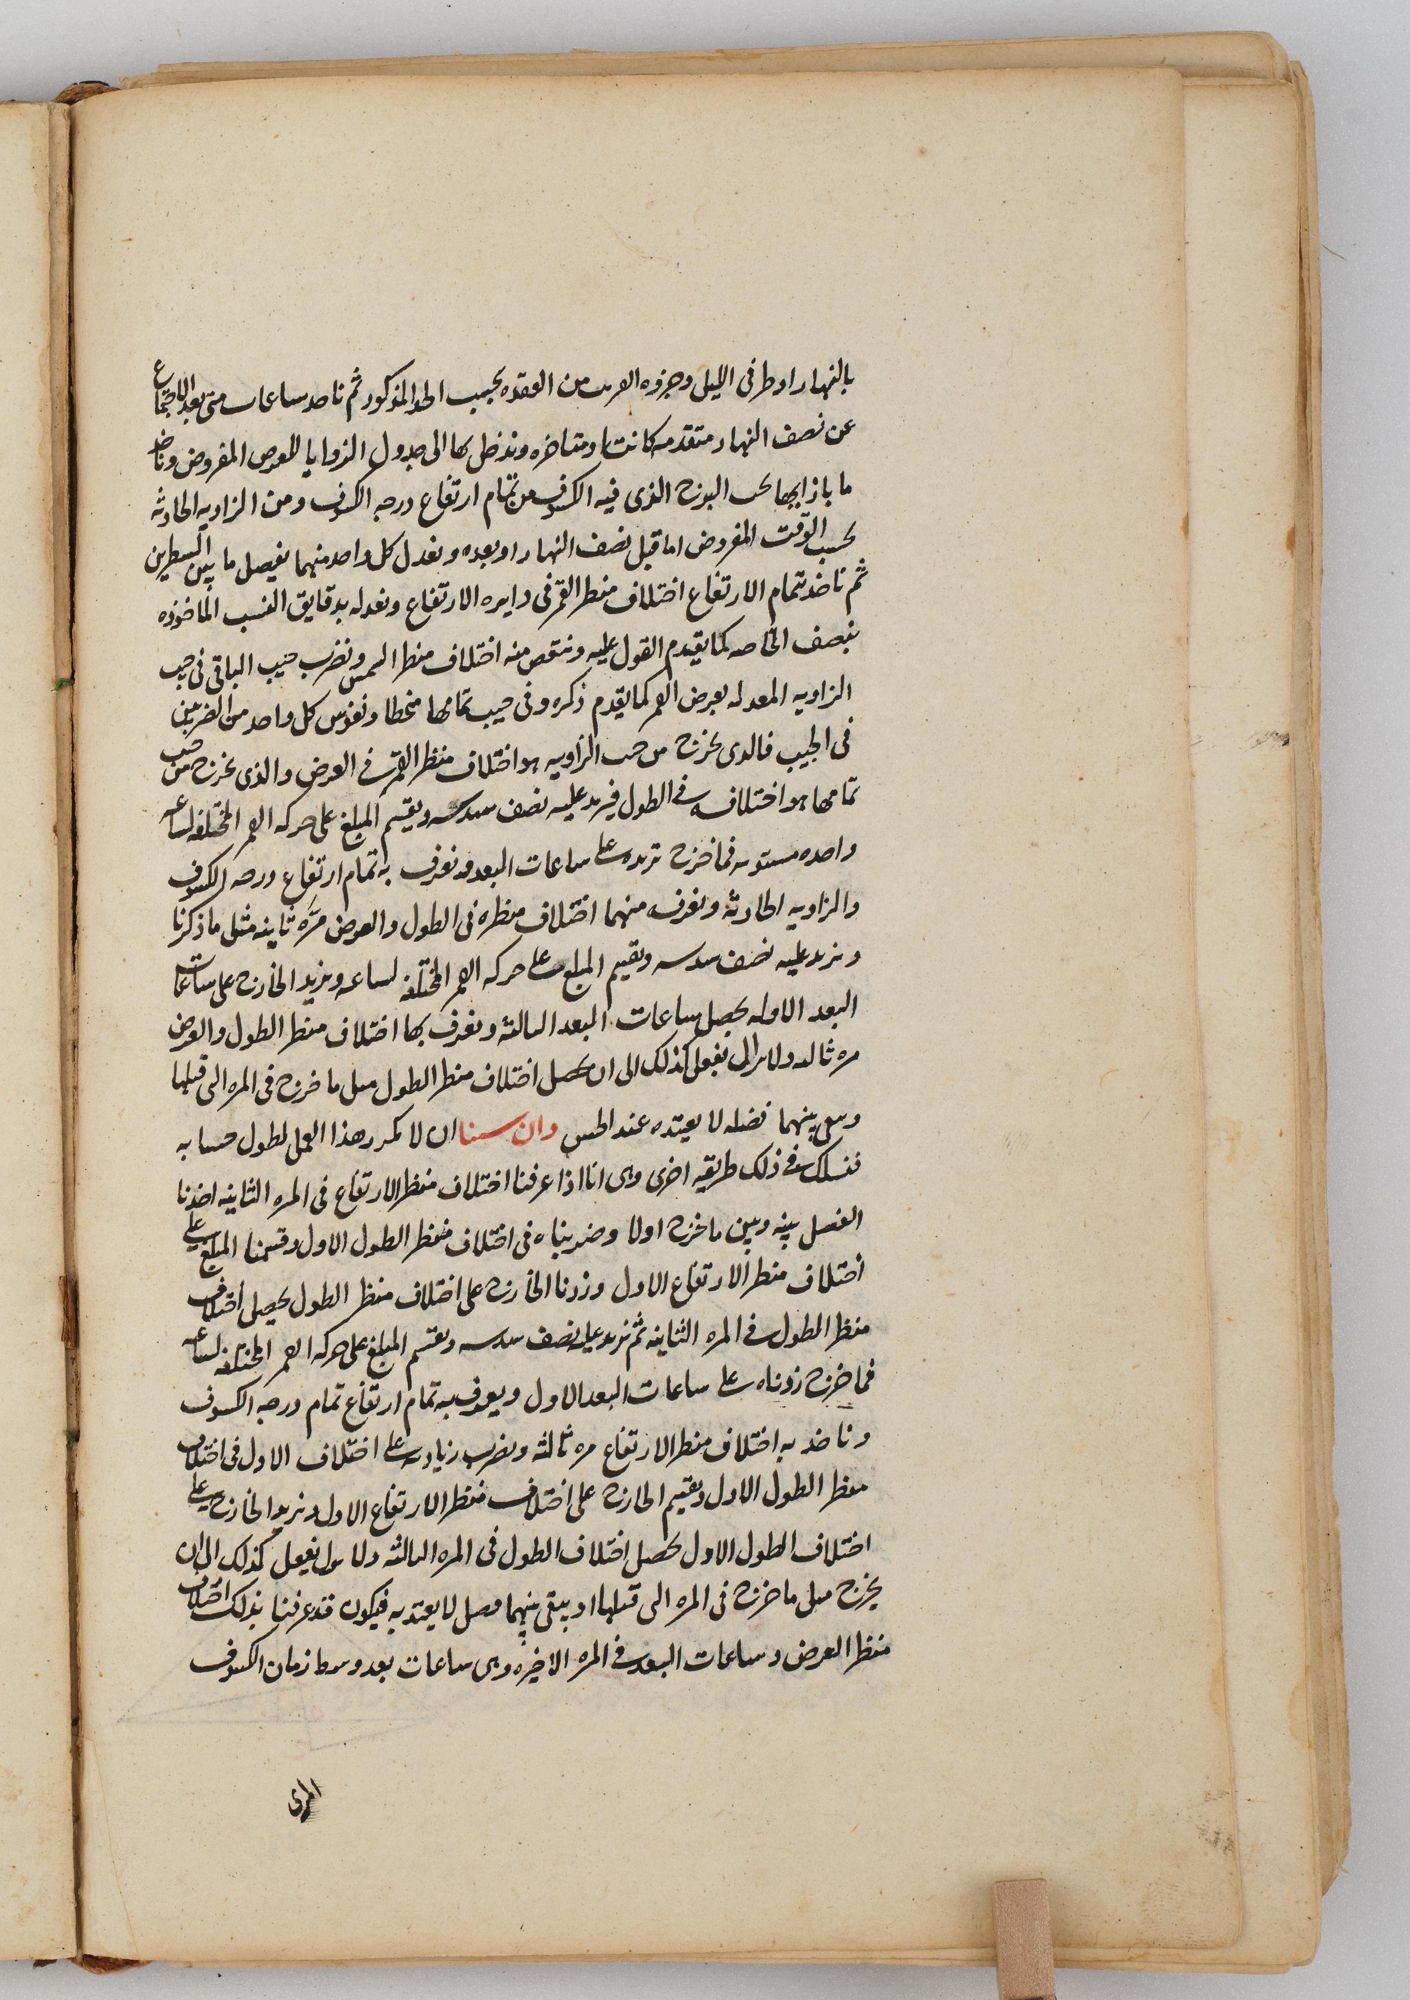 بالنهار او طرفى الليل وجزوه القريب من العقده بحسب الحد المذكور ثم ناخذ ساعات متى بعد الاجتماع
عن نصف النهار متقدمه كانت او متاخره وندخل بها الى جدول الزوايا للعرض المفروض وناخذ
ما بازايها تحت البرج الذى فيه الكسوف من تمام ارتفاع درجه الكسوف ومن الزاويه الحادثه
بحسب الوقت المفروض اما قبل نصف النهار او بعده ونعدل كل واحد منهما بفضل ما بين السطرين
ثم ناخذ بتمام الارتفاع اختلاف منظر القمر فى دايره الارتفاع ونعدله بدقايق النسب الماخوذه
بنصف الخاصه كما تقدم القول عليه وننقص منه اختلاف منظر الشمس ونضرب جيب الباقى فى جيب
الزاويه المعدله بعرض القمر كما تقدم ذكره وفى جيب تمامها منحطا ونقوس كل واحد من الضربين
فى الجيب فالذى يخرج من جيب الزاويه هو اختلاف منظر القمر فى العرض والذى يخرج من جيب
تمامها هو اختلافه فى الطول فنزيد عليه نصف سدسه ونقسم المبلغ على حركه القمر المختلفه لساعه
واحده مستويه فما خرج نزيده على ساعات البعد ونعرف به تمام ارتفاع درجه الكسوف
والزاويه الحادثه ونعرف منهما اختلاف منظره فى الطول والعرض مره ثانيه مثل ما ذكرنا
ونزيد عليه نصف سدسه ونقسم المبلغ على حركه القمر المختلفه لساعه ونزيد الخارج على ساعات
البعد الاوله يحصل ساعات البعد الثالثه ونعرف بها اختلاف منظر الطول والعرض
مره ثالثه ولا نزال نفعل كذلك الى ان يحصل اختلاف منظر الطول مثل ما خرج فى المره التى قبلها
ويبقى بينهما فضله لا يعتده عند الحس وان سنا ان لا نكرر هذا العمل لطول حسابه
فنسلك فى ذلك طريقه اخرى وهى انا اذا عرفنا اختلاف منظر الارتفاع فى المره الثانيه اخذنا
الفضل بينه وبين ما خرج اولا وضربناه فى اختلاف منظر الطول الاول وقسمنا المبلغ على
اختلاف منظر الارتفاع الاول وزدنا الخارج على اختلاف منظر الطول يحصل اختلاف
منظر الطول فى المره الثانيه ثم نزيد عليه نصف سدسه ونقسم المبلغ على حركه القمر المختلفه لساعه
فما خرج زدناه على ساعات البعد الاول ويعرف به تمام ارتفاع تمام درجه الكسوف
وناخذ به اختلاف منظر الارتفاع مره ثالثه ونضرب زيادته على اختلاف الاول فى اختلاف
منظر الطول الاول ونقسم الخارج على اختلاف منظر الارتفاع الاول ونزيد الخارج على
اختلاف الطول الاول يحصل اختلاف الطول فى المره الثالثه ولا نزال نفعل كذلك الى ان
يخرج مثل ما خرج فى المره التى قبلها او يبقى بينهما فضل لا يعتد به فيكون قد عرفنا بذلك اختلاف
منظر العرض وساعات البعد فى المره الاخيره وهى ساعات بعد وسط زمان الكسوف